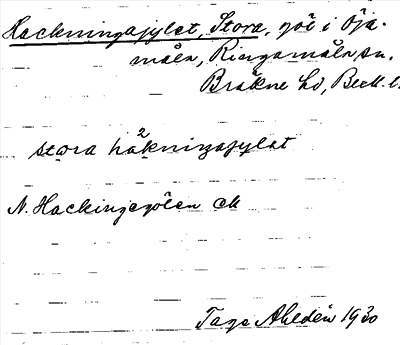 Hackningagylet, Stora, göl i Öja-
måla, Ringamåla sn.
Bräkne hd, Blek. l.
stora håkningagylet
N. Hackingegölen ek
Tage Ahldén 1930